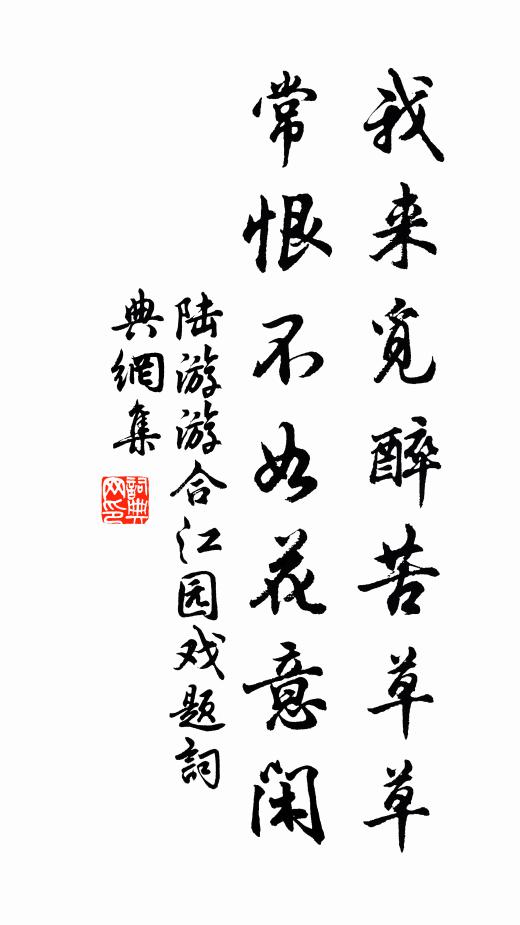 我来觅醉苦草草
常恨不如花意闲
陆游游合江园戏题詞
典網集
詞典网印